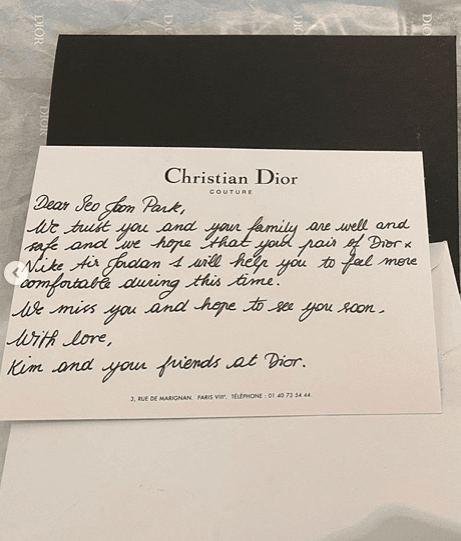 DIOR
DIOR
DIOR
DIOR
DIOR
Christian Dior
COUTURE
Dear Seo Joon Park,
We trust you and your family are well and
safe and we hope that your pair of Dior x
Nike Air Jordan 1 will help you to feel more
comfortable during this time.
We miss you and hope to see you soon.
With love,
Kim and your friends at Dior.
3, RUE DE MARIGNAN. PARIS VIIIe. TÉLÉPHONE : 01 40 73 54 44